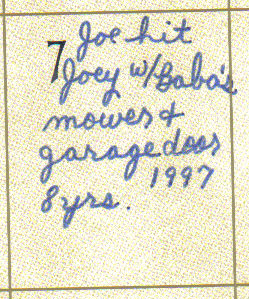 Joe hit
7 Joey w/Baba's
mower &
garage door
1997
8 yrs.